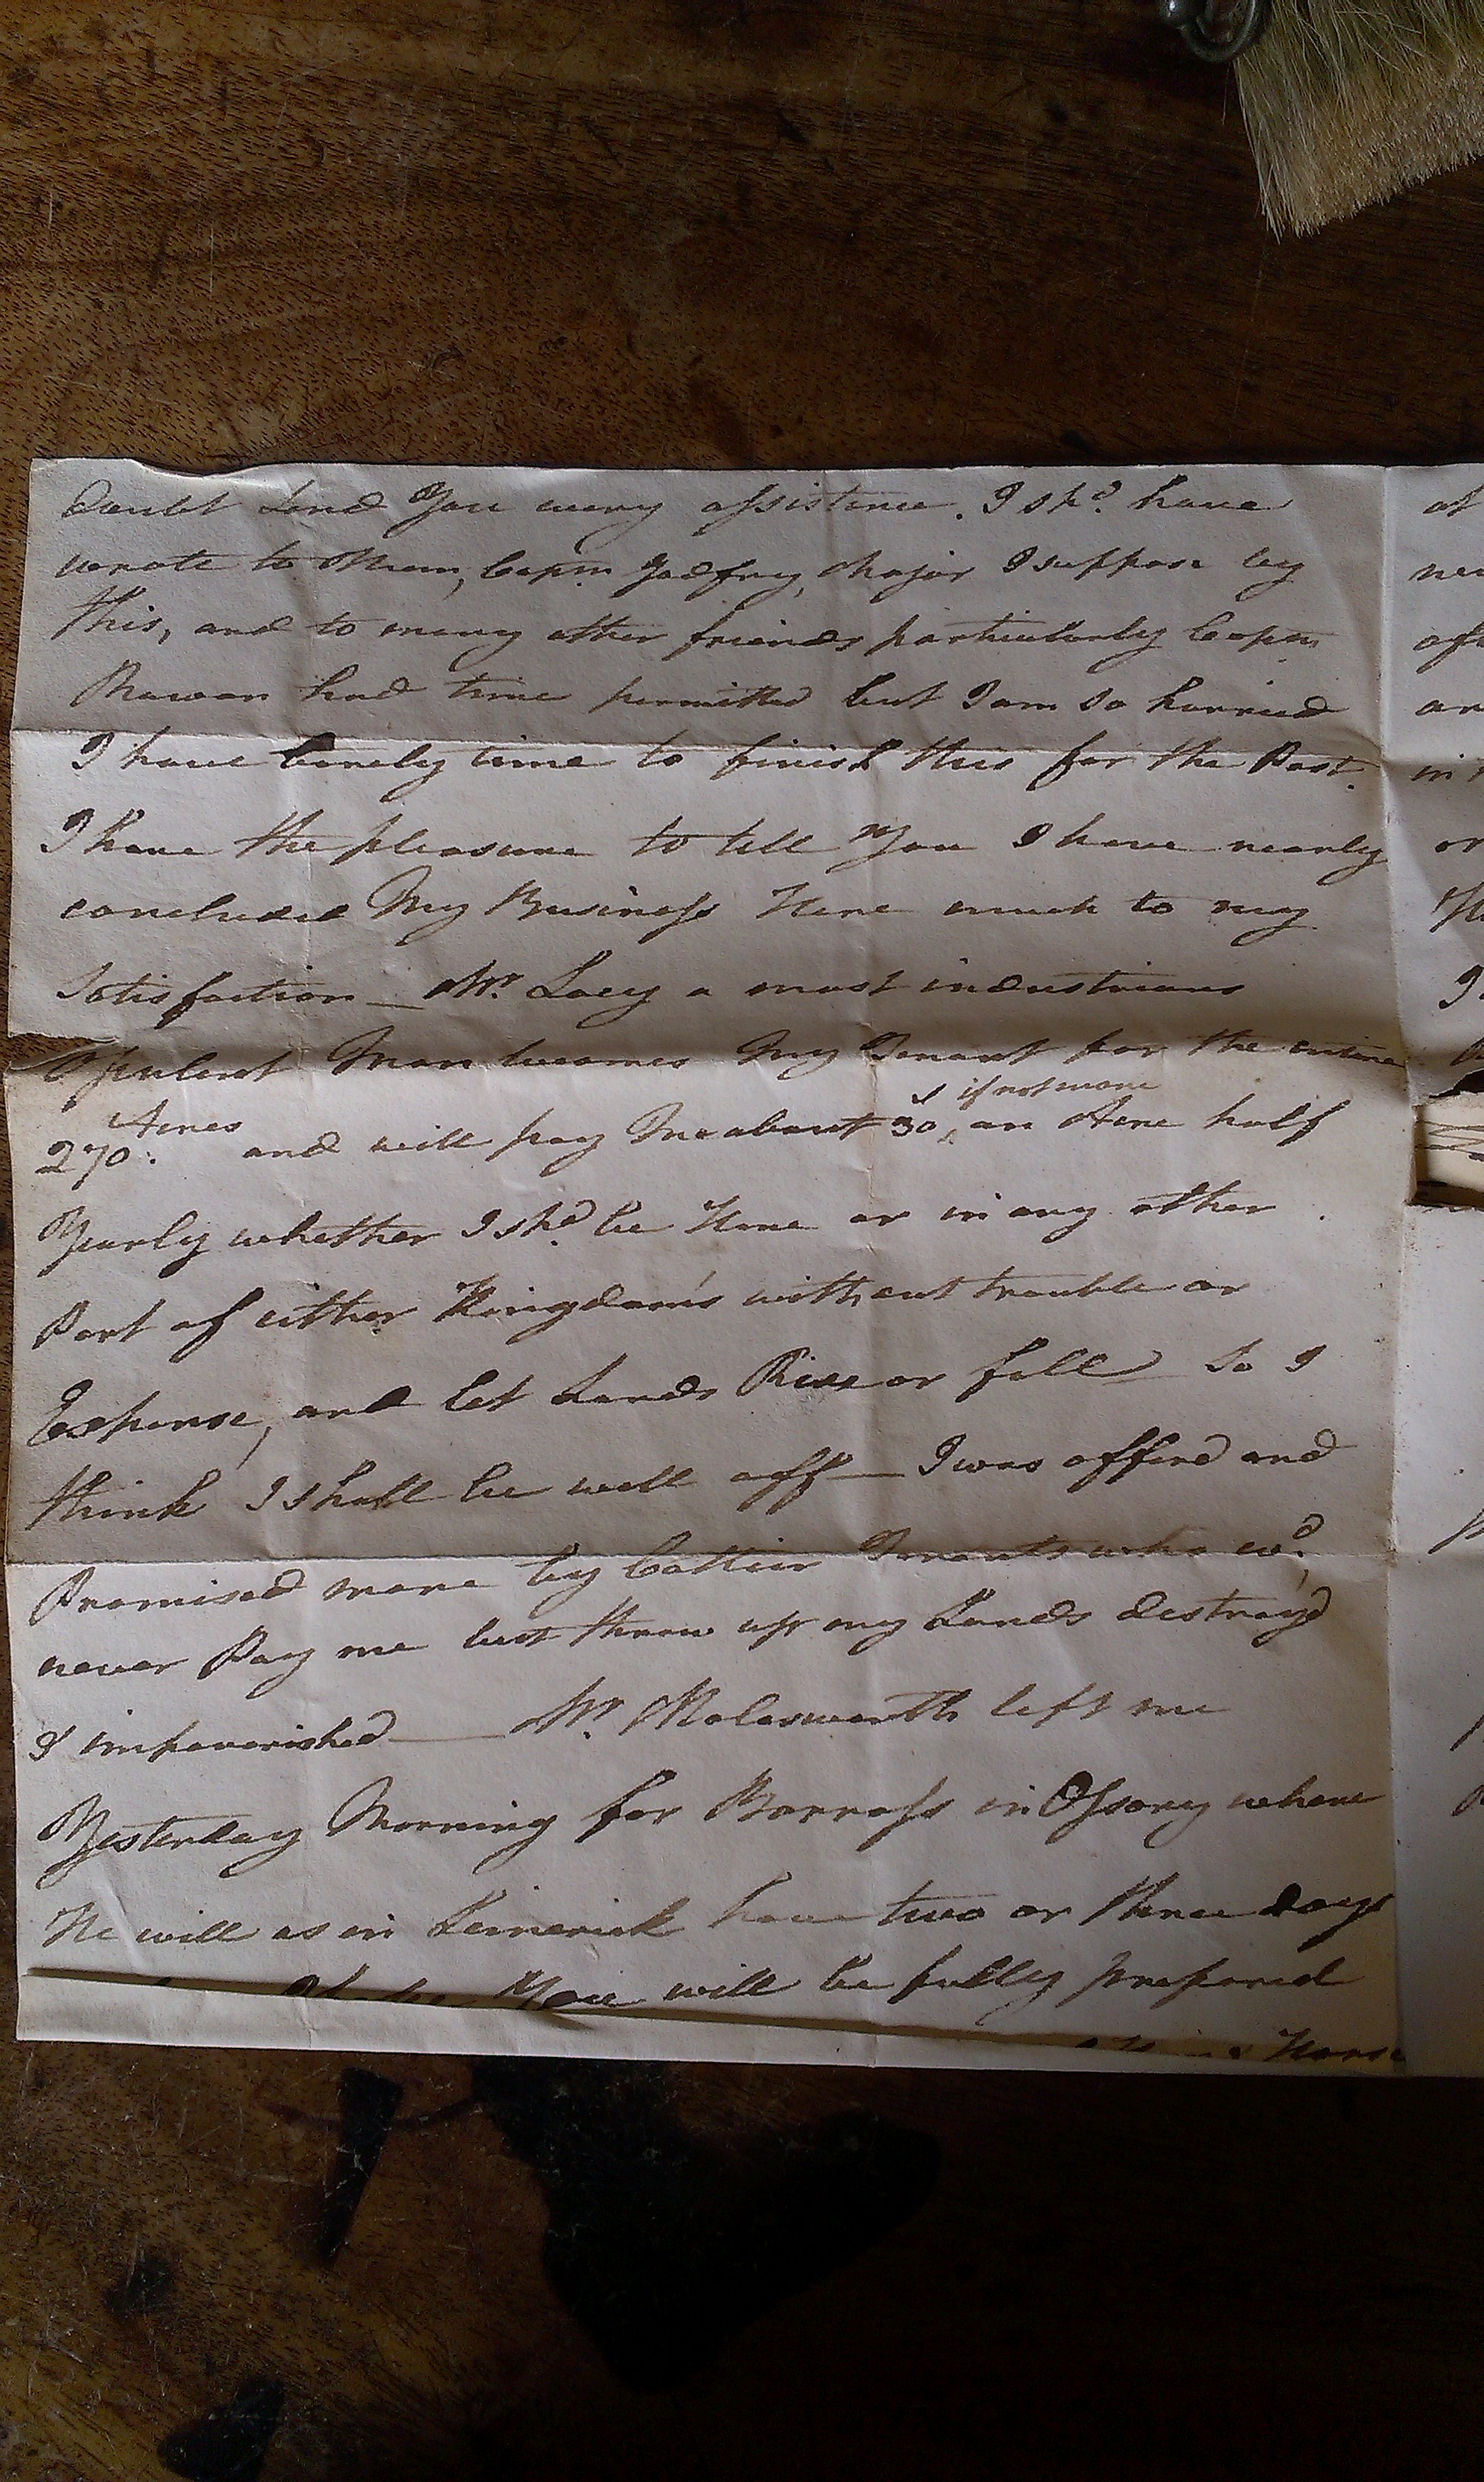 doubt Lend You every assistance. I sh.d have
wrote to Them, Capm Godfrey, Major I suppose by
this, and to many other friends particularly Capm
Rawan had time permitted but I am so hurried
I have barely time to finish this for the Post.
I have the pleasure to tell You I have nearly
concluded My Business Here much to my
Satisfaction — Mr. Lacy a most industrious
Opulent Man becomes My Tenant for the entire
270 Acres and will pay Me about 30s if not more an Acre half
Yearly whether I sh.d be Here or in any other
Part of either Kingdom's without trouble or
Expense, and let Lands Rise or fall so I
think I shall be well off — I was offerd and
Promised more by Cottier Tenants who wd.
never Pay me but throw up my Lands destroy'd
& impoverished — Mr. Molesworth left me
Yesterday Morning for Borross in Ossory where
He will as in Limerick have two or three days
You will be fully prepared
Horse
at
in
or